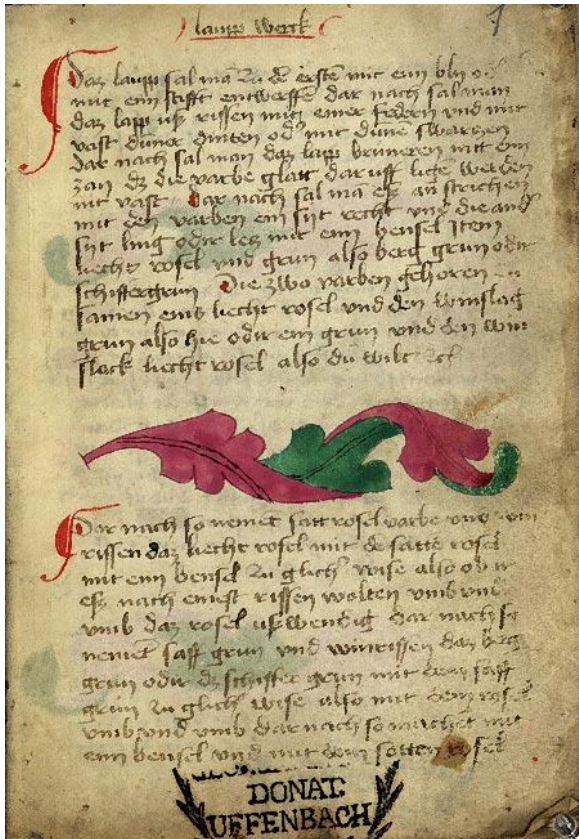 laupp werck
1
Daz laupp sal mā zu dē ersten mit eim bly od
mit eim stifft entwerffē dar nach sal man
daz lapp uß rissen mitz einer federn und mit
vast duner dinten od' mit dūne swartzen
dar nach sal man daz lapp bruneren mit eim
zan dz die varbe glatt daruff ligen werden
nit vast Dar nach sal mā eß an strichen
mit den varben ein syt recht und die and'
syt ling odir letz mit eim bensel Item
liecht rosel und grun also berg grun odir
schiffergrun Die zwo varben gehoren
samen eins liecht rosel und den winslag
grun also hie odir ein grun und den win
slack liecht rosel also du wilt
Dar nach so nemet satt rosel varbe und
rissen daz liecht rosel mit dē satte rosel
mit eim bensel zu glich' wise also ob ir
eß nach einest rissen wolten umb und
umb daz rosel ußwendig dar nach so
nemet safft grun und umrissen daz berg
grun odir dz schiffer grun mit dem safft
grun zu glich' wise also mit dem rosel
umb und umb dar nach so machet mit
eim bensel und mit dem satten rosel
DONAT.
UFFENBACH